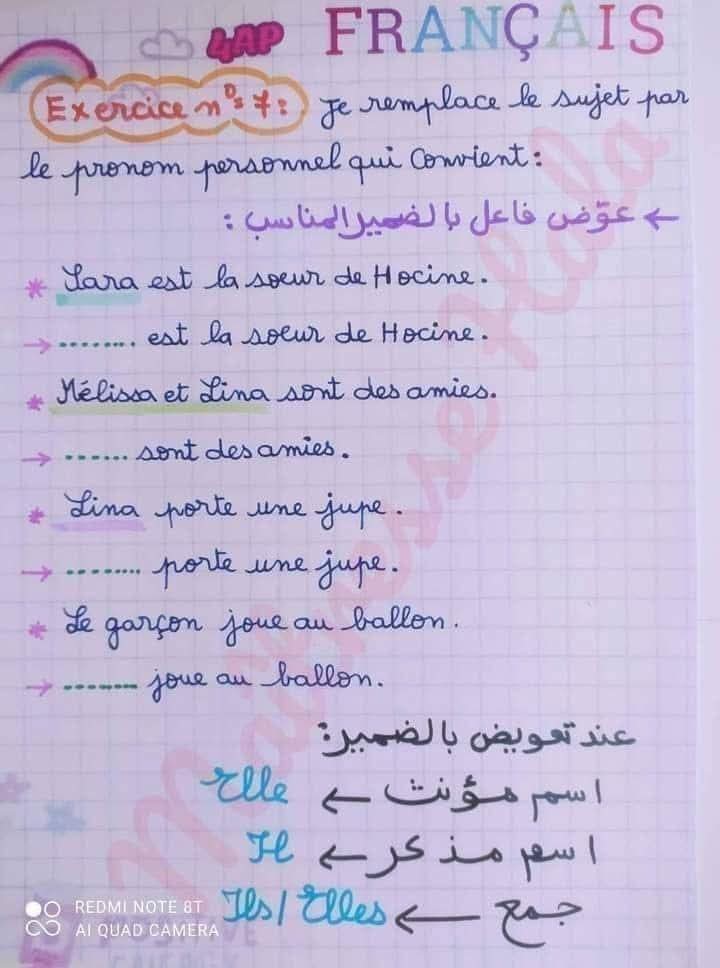 4AP FRANÇAIS
Exercice n°=7: Je remplace le sujet par
le pronom personnel qui convient:
← عوّض فاعل بالضمير المناسب :
* Sara est la soeur de Hocine.
→ ........ est la soeur de Hocine.
* Mélissa et Lina sont des amies.
→ ...... sont des amies.
* Lina porte une jupe.
→ ........ porte une jupe.
* Le garçon joue au ballon.
→ ........ joue au ballon.
عند تعويض بالضمير:
اسم مؤنث ← Elle
اسم مذكر ← Il
جمع ← Ils/Elles
Maîtresse Hala
REDMI NOTE 8T
AI QUAD CAMERA